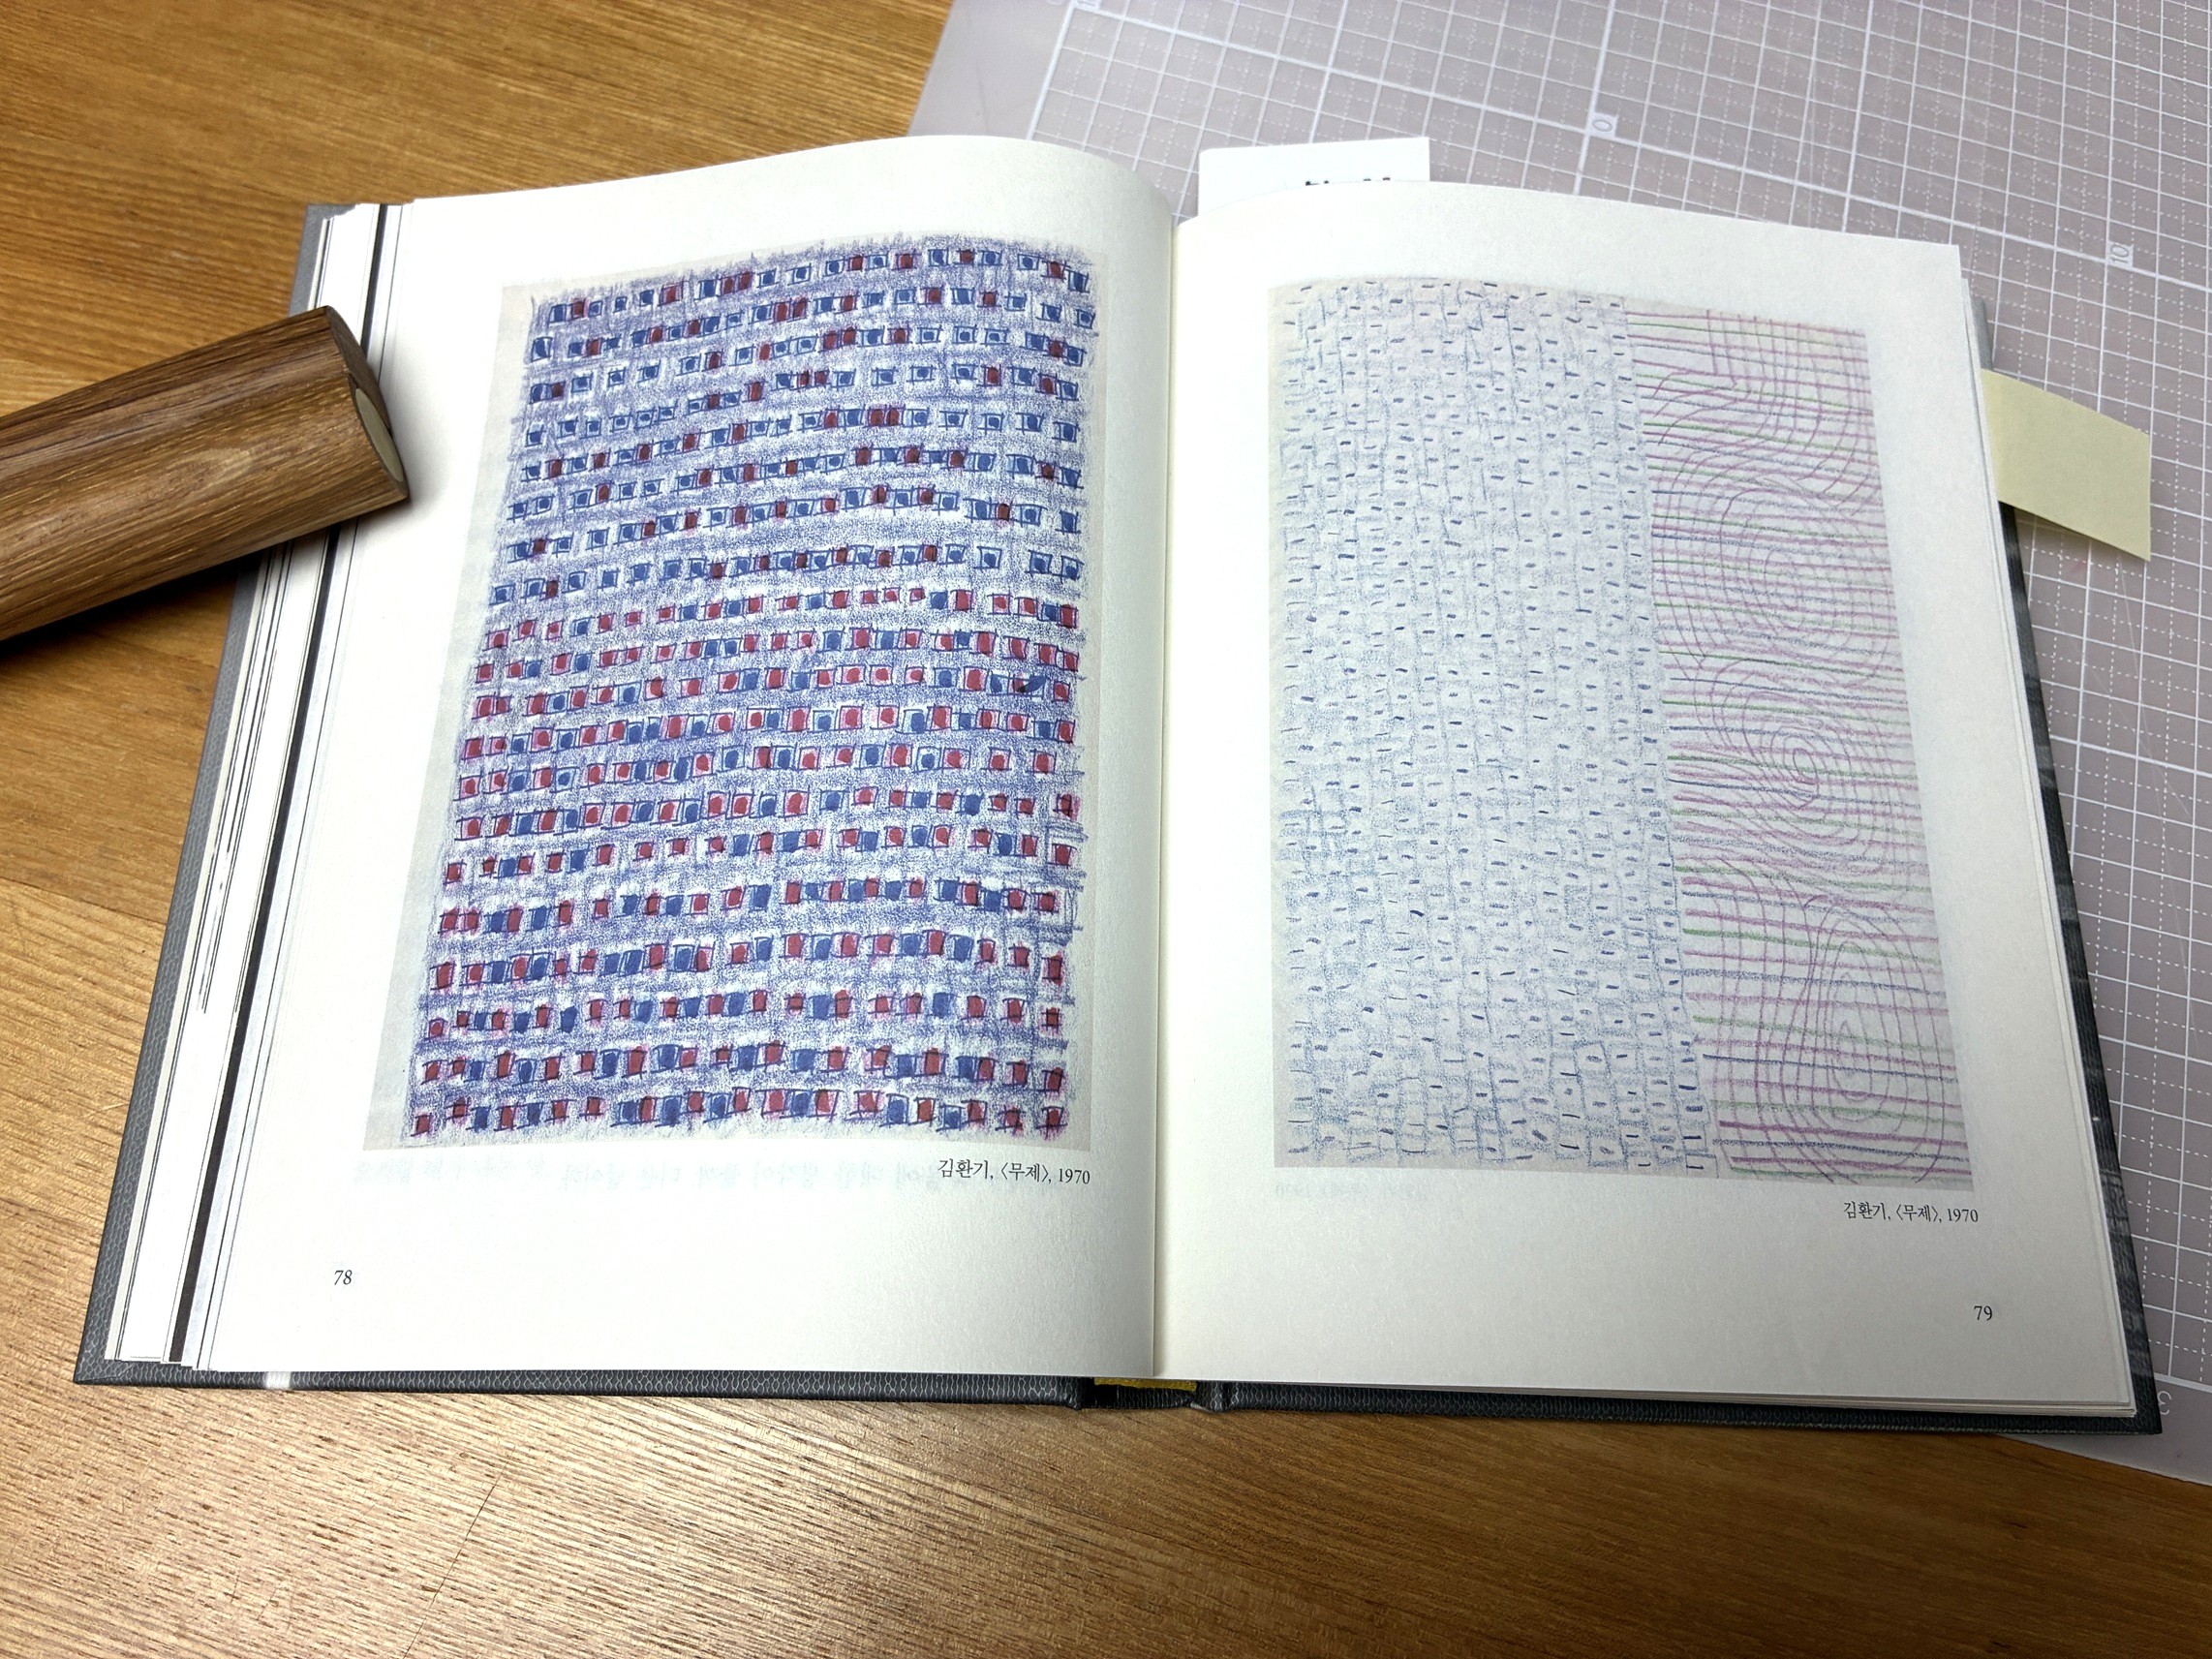 김환기, 〈무제〉, 1970
78
김환기, 〈무제〉, 1970
79
0
10
3